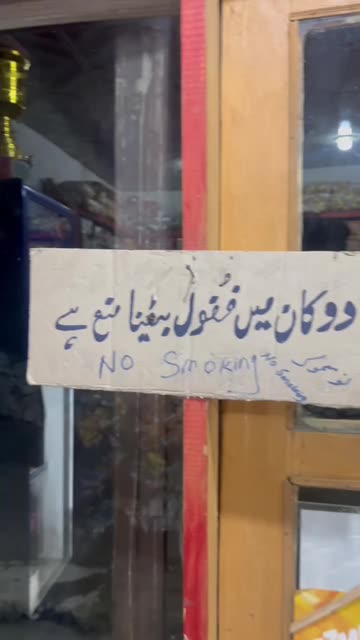 دوکان میں فقول بیٹھنا منع ہے
No Smoking
No Smoking
نو سموکر